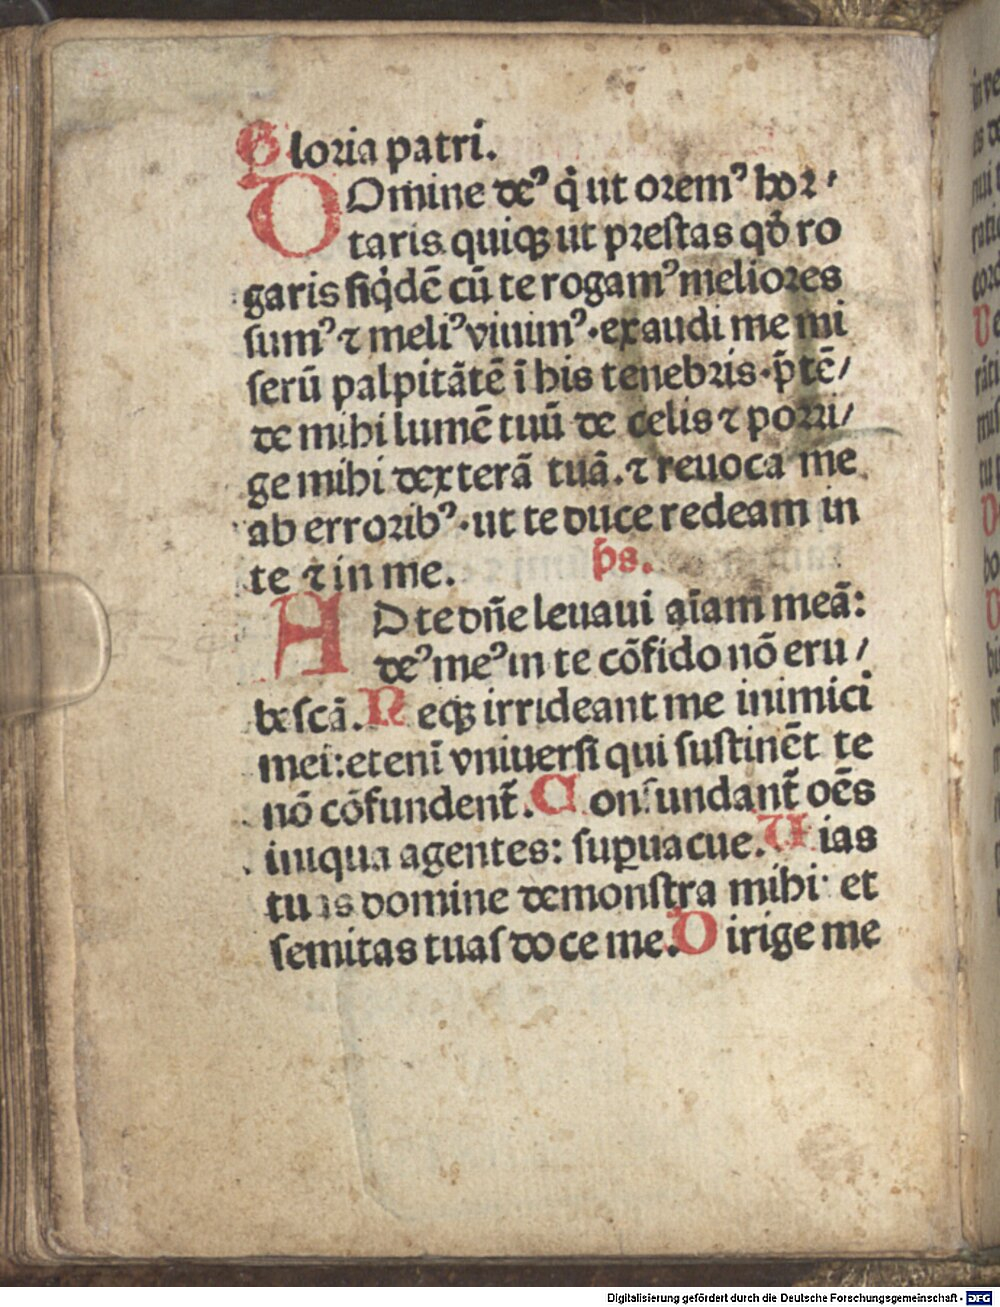 Gloria patri.
DOmine deꝰ q̇ ut oremꝰ hor⸝
taris quiqꝫ ut prestas qđ ro
garis siq̇dē cū te rogamꝰ meliores
sumꝰ ⁊ meliꝰ viuimꝰ·exaudi me mi
serū palpitātē ī his tenebris·p̄tē/
de mihi lumē tuū de celis ⁊ porri/
ge mihi dexterā tuā.⁊ reuoca me
ab erroribꝰ·ut te duce redeam in
te ⁊ in me. p̄s.
AD te dn̄e leuaui aīam meā:
deꝰ meꝰ in te cōfido nō eru /
bescā. Neqꝫ irrideant me inimici
mei:etenī vniuersi qui sustinēt te
nō cōfundent̄. Confundant̄ oēs
iniqua agentes: suꝑuacue. Uias
tuas domine demonstra mihi: et
semitas tuas doce me. Dirige me
Digitalisierung gefördert durch die Deutsche Forschungsgemeinschaft - DFG